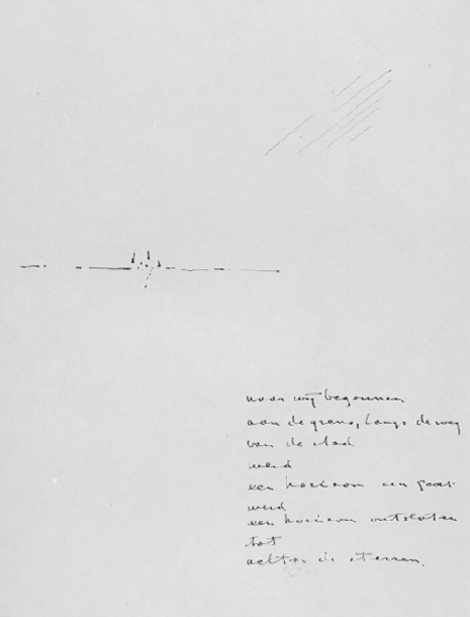 waar wij begonnen
aan de grens, langs de weg
van de stad
werd
een horizon een poort
werd
een horizon ontsloten
tot
achter de sterren.